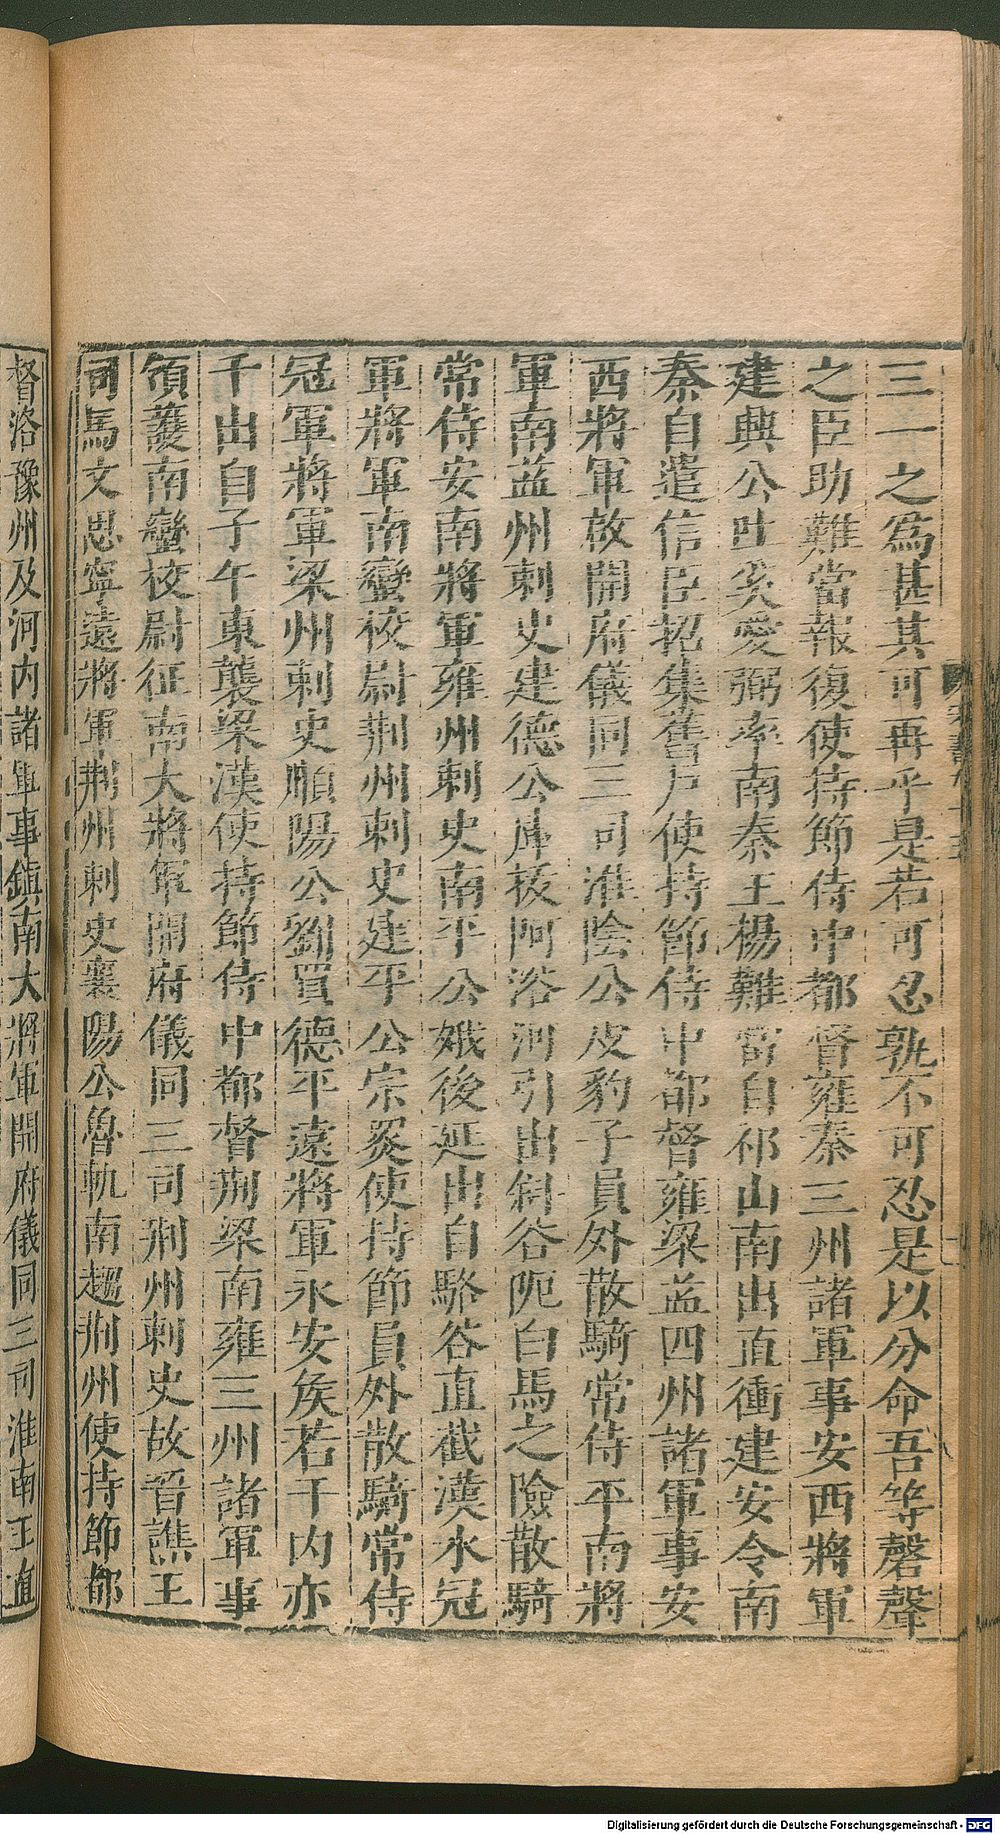 三一之爲甚其可再乎是若可忍孰不可忍是以分命吾等磬聲
之臣助難當報復使持節侍中都督雍秦三州諸軍事安西將軍
建興公吐奚愛弼率南秦王楊難當自祁山南出直衝建安令南
秦自遣信臣招集舊戶使持節侍中都督雍梁益四州諸軍事安
西將軍故開府儀同三司淮陰公皮豹子員外散騎常侍平南將
軍南益州刺史建德公庫拔阿浴河引出斜谷阨白馬之險散騎
常侍安南將軍雍州刺史南平公娥後延出自駱谷直截漢水冠
軍將軍南蠻校尉荆州刺史建平公宗㚟使持節員外散騎常侍
冠軍將軍梁州刺史順陽公劉買德平遠將軍永安矦若干内亦
千出自子午東襲梁漢使持節侍中都督荆梁南雍三州諸軍事
領護南蠻校尉征南大將軍開府儀同三司荆州刺史故晋譙王
司馬文思寧遠將軍荆州刺史襄陽公魯軌南趨荆州使持節都
督洛豫州及河内諸軍事鎮南大將軍開府儀同三司淮南王直
宋書九十五
Digitalisierung gefördert durch die Deutsche Forschungsgemeinschaft - DFG